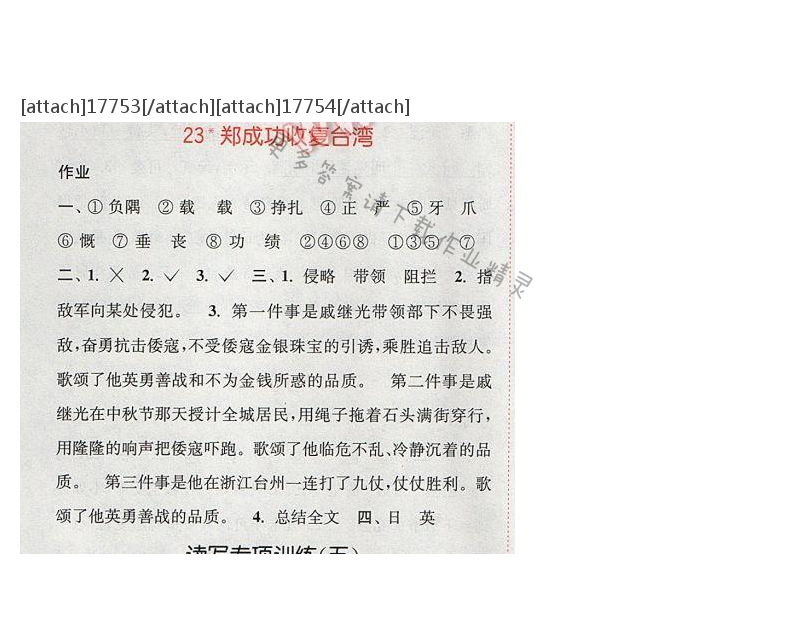 [attach]17753[/attach][attach]17754[/attach]
23* 郑成功收复台湾
更多答案请下载作业精灵
作业
一、① 负隅 ② 载 载 ③ 挣扎 ④ 正 严 ⑤ 牙 爪
⑥ 慨 ⑦ 垂 丧 ⑧ 功 绩 ②④⑥⑧ ①③⑤ ⑦
二、1. ╳ 2. ✓ 3. ✓ 三、1. 侵略 带领 阻拦 2. 指
敌军向某处侵犯。 3. 第一件事是戚继光带领部下不畏强
敌,奋勇抗击倭寇,不受倭寇金银珠宝的引诱,乘胜追击敌人。
歌颂了他英勇善战和不为金钱所惑的品质。 第二件事是戚
继光在中秋节那天授计全城居民,用绳子拖着石头满街穿行,
用隆隆的响声把倭寇吓跑。歌颂了他临危不乱、冷静沉着的品
质。 第三件事是他在浙江台州一连打了九仗,仗仗胜利。歌
颂了他英勇善战的品质。 4. 总结全文 四、日 英
读写专项训练(五)